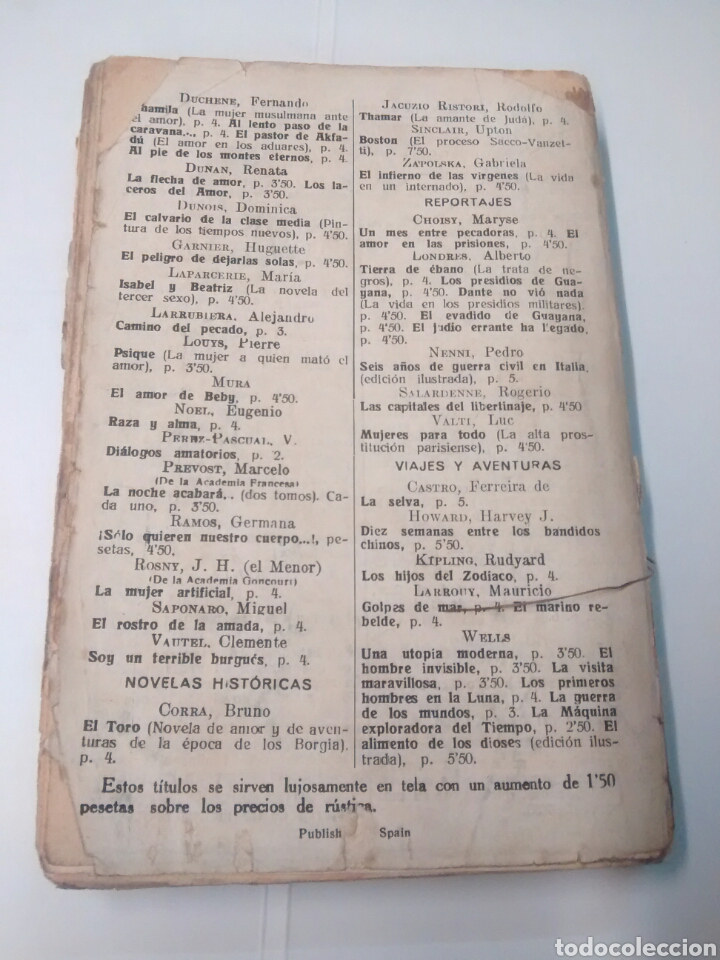 DUCHENE, Fernando
hamila (La mujer musulmana ante
el amor), p. 4. Al lento paso de la
caravana..., p. 4. El pastor de Akfa-
dú (El amor en los aduares), p. 4.
Al pie de los montes eternos, p. 4.
DUNAN, Renata
La flecha de amor, p. 3'50. Los la-
ceros del Amor, p. 3'50.
DUNOIS, Dominica
El calvario de la clase media (Pin-
tura de los tiempos nuevos), p. 4'50.
GARNIER, Huguette
El peligro de dejarlas solas, p. 4'50.
LAPARCERIE, María
Isabel y Beatriz (La novela del
tercer sexo), p. 4'50.
LARRUBIERA, Alejandro
Camino del pecado, p. 3.
LOUYS, Pierre
Psique (La mujer a quien mató el
amor), p. 3'50.
MURA
El amor de Beby, p. 4'50.
NOEL, Eugenio
Raza y alma, p. 4.
PÉREZ-PASCUAL, V.
Diálogos amatorios, p. 2.
PREVOST, Marcelo
(De la Academia Francesa)
La noche acabará.. (dos tomos). Ca-
da uno, p. 3'50.
RAMOS, Germana
¡Sólo quieren nuestro cuerpo...!, pe-
setas, 4'50.
ROSNY, J. H. (el Menor)
(De la Academia Goncourt)
La mujer artificial, p. 4.
SAPONARO, Miguel
El rostro de la amada, p. 4.
VAUTEL, Clemente
Soy un terrible burgués, p. 4.
NOVELAS HISTÓRICAS
CORRA, Bruno
El Toro (Novela de amor y de aven-
turas de la época de los Borgia),
p. 4.
JACUZIO RISTORI, Rodolfo
Thamar (La amante de Judá), p. 4.
SINCLAIR, Upton
Boston (El proceso Sacco-Vanzet-
ti), p. 7'50.
ZAPOLSKA, Gabriela
El infierno de las vírgenes (La vida
en un internado), p. 4'50.
REPORTAJES
CHOISY, Maryse
Un mes entre pecadoras, p. 4. El
amor en las prisiones, p. 4'50.
LONDRES, Alberto
Tierra de ébano (La trata de ne-
gros), p. 4. Los presidios de Gua-
yana, p. 4'50. Dante no vió nada
(La vida en los presidios militares).
p. 4'50. El evadido de Guayana,
p. 4'50. El judío errante ha llegado,
p. 4'50.
NENNI, Pedro
Seis años de guerra civil en Italia,
(edición ilustrada), p. 5.
SALARDENNE, Rogerio
Las capitales del libertinaje, p. 4'50
VALTI, Luc
Mujeres para todo (La alta pros-
titución parisiense), p. 4'50.
VIAJES Y AVENTURAS
CASTRO, Ferreira de
La selva, p. 5.
HOWARD, Harvey J.
Diez semanas entre los bandidos
chinos, p. 5'50.
KIPLING, Rudyard
Los hijos del Zodíaco, p. 4.
LARROUY, Mauricio
Golpes de mar, p. 4. El marino re-
belde, p. 4.
WELLS
Una utopía moderna, p. 3'50. El
hombre invisible, p. 3'50. La visita
maravillosa, p. 3'50. Los primeros
hombres en la Luna, p. 4. La guerra
de los mundos, p. 3. La Máquina
exploradora del Tiempo, p. 2'50. El
alimento de los dioses (edición ilus-
trada), p. 5'50.
Estos títulos se sirven lujosamente en tela con un aumento de 1'50
pesetas sobre los precios de rústica.
Publish Spain
todocoleccion